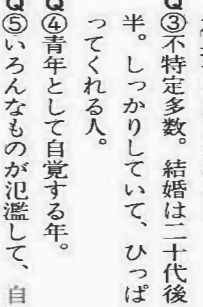 ③不特定多数。結婚は二十代後
半。しっかりしていて、ひっぱ
ってくれる人。
Q④青年として自覚する年。
Q⑤いろんなものが氾濫して、自